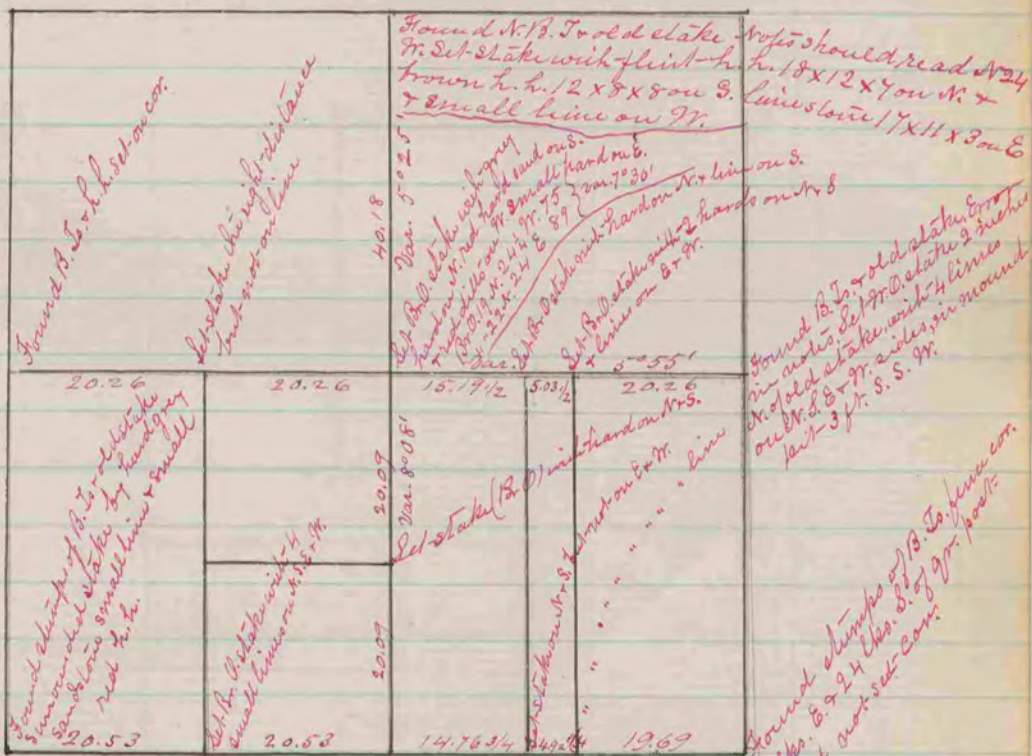 Found N. B. T. & old stake Notes should read N 24
W. Set stake with flint h. h. 18 x 12 x 7 on N. &
brown h. h. 12 x 8 x 8 on S. limestone 17 x 11 x 3 on E
& small lime on W.
Found B. Ts. & h. h. set on cor.
Set stake at right distance
but not on line
40.18
Var. 5°025'
Set B.O. stake with grey
hard on N. red hard sand on S.
& red ditto on W. small hard on E.
B. O. 19 N. 24 4 W. 75 } Var. 7°30'
" 22 N. 24 E 89 }
Set Br. O. stake with hard on N. & lime on S.
Set Br. O. stake with 2 hards on N & S
& limes on E & W.
Var. 5°55'
Found B. Ts. & old stake. Error
in notes. Set W. O. stake 2 inches
N. of old stake, with 4 limes
on N. S. E. & W. sides, in mound
pit 3 ft. S. S. W.
20.26
20.26
15.19 1/2
5.03 1/2
20.26
Found stumps of B. Ts & old stake
surrounded stake by hard grey
sandstone small lime & small
red h. h.
20.09
Var. 8°08'
Set stake (B. O) with hard on N & S.
Set Br. O. stake with 4
small limes on N. S. E. & W.
20.09
Set stake on N & S. but not on E & W. line
" " " " " "
Found stumps of B. Ts. fence cor.
lks. E. & 24 lks. S. of qr. post
not set cor.
20.53
20.53
14.76 3/4
4.92 1/4
19.69